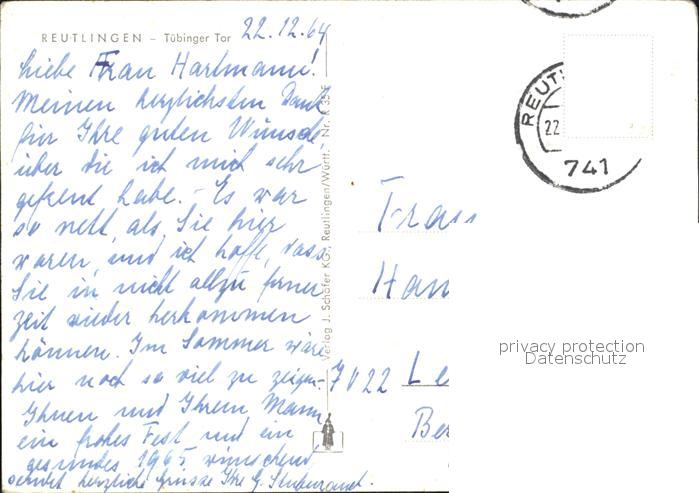 REUTLINGEN – Tübinger Tor
22.12.64
Liebe Frau Hartmann!
Meinen herzlichsten Dank
für Ihre guten Wünsche
über die ich mich sehr
gefreut habe. - Es war
so nett, als Sie hier
waren, und ich hoffe, dass
Sie in nicht allzu ferner
Zeit wieder herkommen
können. Im Sommer wäre
hier noch so viel zu zeigen.-
Ihnen und Ihrem Mann
ein frohes Fest und ein
gesundes 1965 wünschend
sendet herzliche Grüsse Ihre G.
Verlag J. Schäfer KG., Reutlingen/Württ. Nr. R 35
REUT
22
741
Frau
Han
7022 Le
Ber
privacy protection
Datenschutz